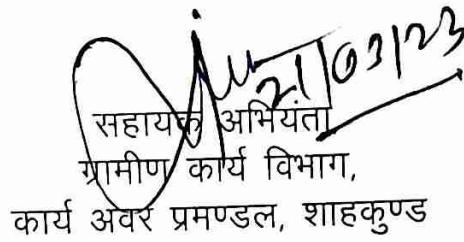 21/03/23
सहायक अभियंता
ग्रामीण कार्य विभाग,
कार्य अवर प्रमण्डल, शाहकुण्ड